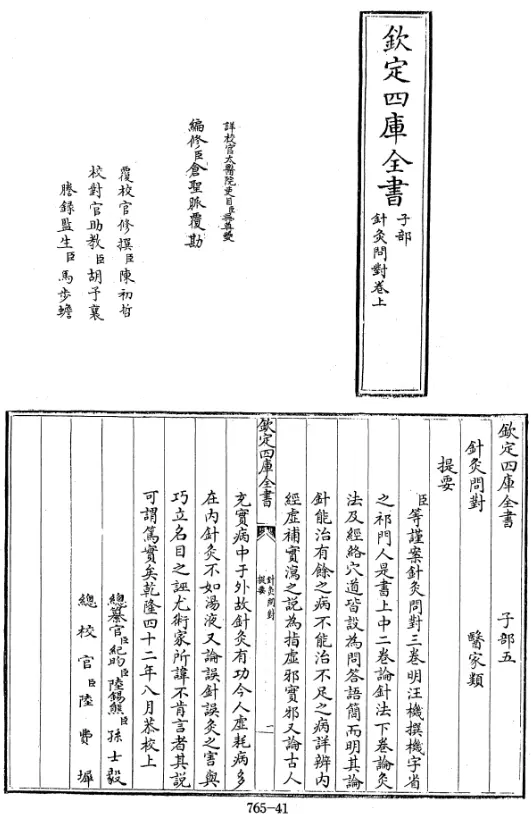 欽定四庫全書
子部
針灸問對卷上
詳校官太醫院吏目臣
編修臣倉聖脈覆勘
覆校官修撰臣陳初哲
校對官助教臣胡予襄
謄錄監生臣馬步蟾
欽定四庫全書 子部五
針灸問對 醫家類
提要
臣等謹案針灸問對三卷明汪機撰機字省
之祁門人是書上中二卷論針法下卷論灸
法及經絡穴道皆設為問答語簡而明其論
針能治有餘之病不能治不足之病詳辨內
經虛補實瀉之說為指虛邪實邪又論古人
欽定四庫全書
針灸問對
提要
一
充實病中于外故針灸有功今人虛耗病多
在內針灸不如湯液又論誤針誤灸之害與
巧立名目之誣尤術家所諱不肯言者其說
可謂篤實矣乾隆四十二年八月恭校上
總纂官臣紀昀臣陸錫熊臣孫士毅
總校官臣陸費墀
765-41